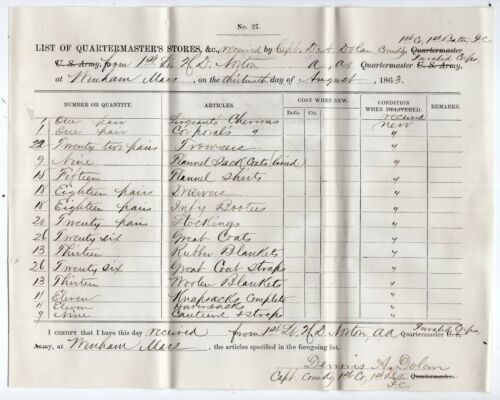 No. 27.
1st Co, 1st Batln, I.C
LIST OF QUARTERMASTER'S STORES, &c., received by Capt. D. A. Dolan Comdg Quartermaster
Invalid Corps
U. S. Army, from 1st Lt. H. D. Norton a, a, Quartermaster U. S. Army,
at Wenham Mass, on the thirteenth day of August, 1863.
NUMBER OR QUANTITY. ARTICLES. COST WHEN NEW. CONDITION WHEN DELIVERED. REMARKS.
Dolls. Cts. received
1 One pair Sergeants Chevrons new
1 One pair Corporal's " "
22 Twenty two pairs Trowsers "
9 Nine Flannel Sack Coats (lined) "
15 Fifteen Flannel Shirts "
18 Eighteen pairs Drawers "
18 Eighteen pairs Infy Bootees "
20 Twenty pairs Stockings "
26 Twenty six Great Coats "
13 Thirteen Rubber Blankets "
26 Twenty six Great Coat Straps "
13 Thirteen Woolen Blankets "
11 Eleven Knapsacks Complete "
11 Eleven Haversacks "
9 Nine Canteens & straps "
I CERTIFY that I have this day received from 1st Lt. H. D. Norton, a a Quartermaster U. S.
Invalid Corps,
Army, at Wenham Mass, the articles specified in the foregoing list.
Dennis A. Dolan
Capt. Comdg 1st Co, 1st Batln Quartermaster.
I.C